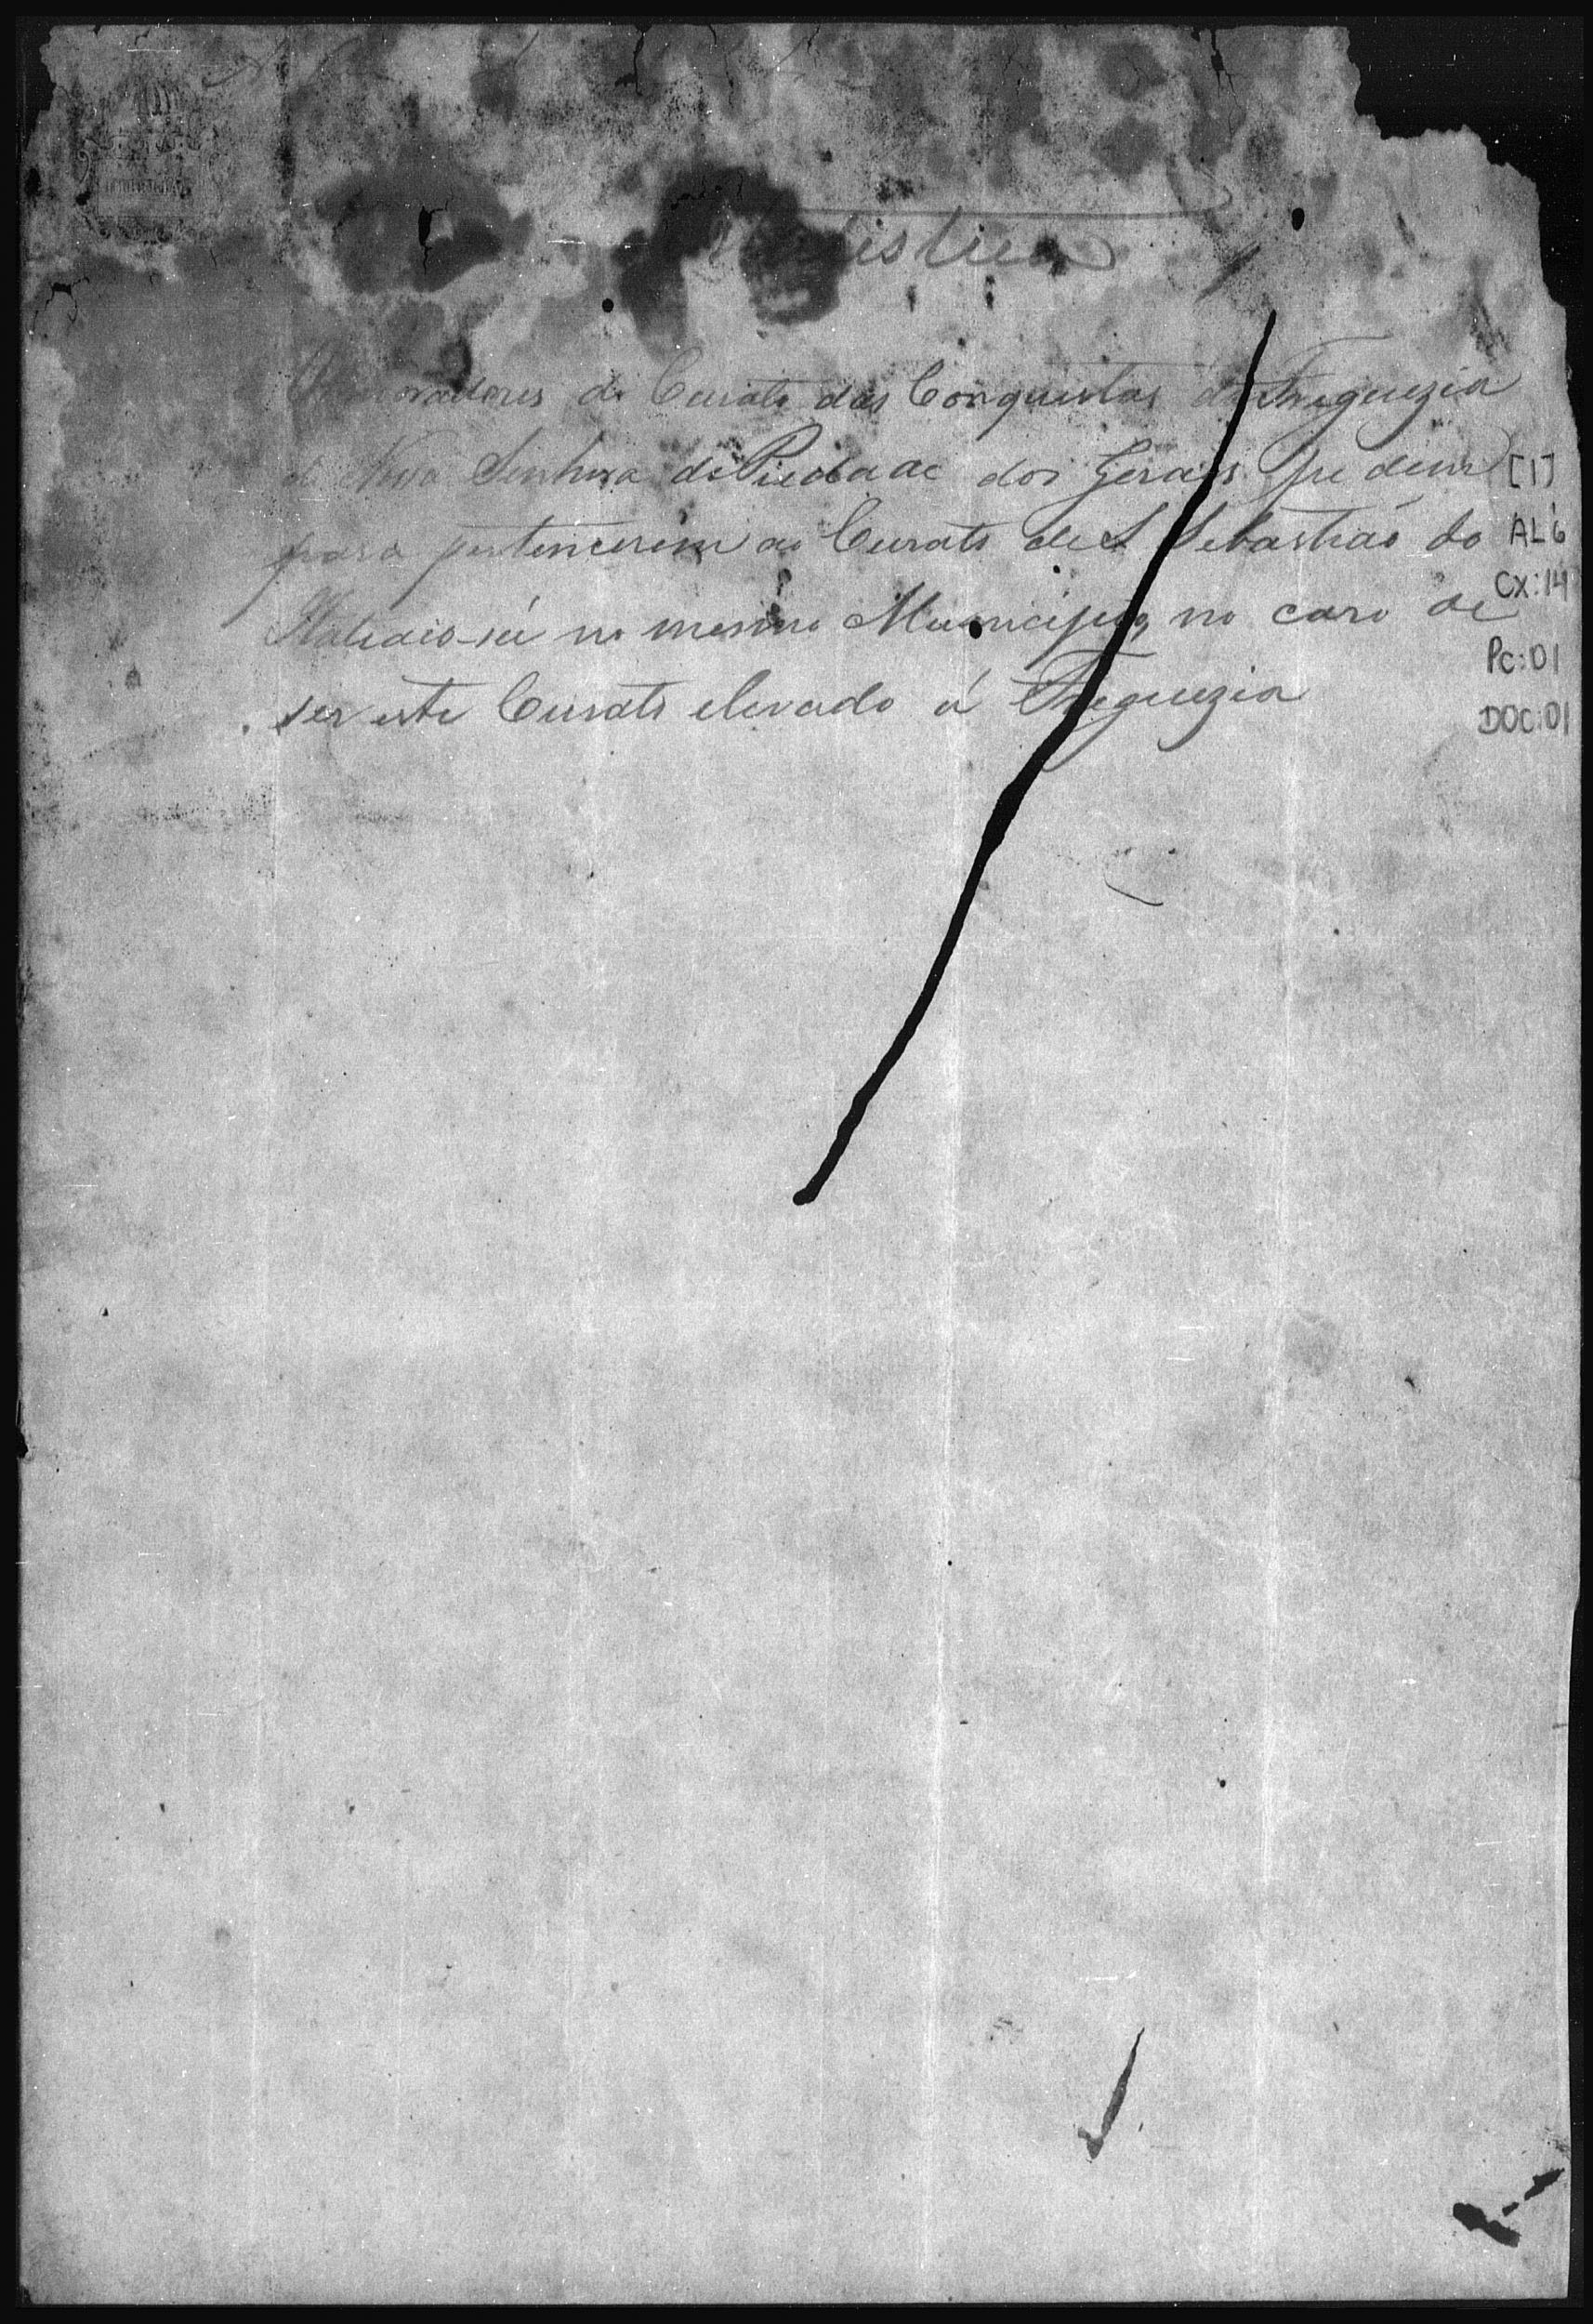 Moradores do Curato das Conquistas da Freguezia
de Nossa Senhora da Piedade dos Gerais pedem
para pertencerem ao Curato de S. Sebastião do
no mesmo Municipio, no caso de
ser este Curato elevado á Freguezia
[1]
AL6
CX:14
PC:01
DOC:01